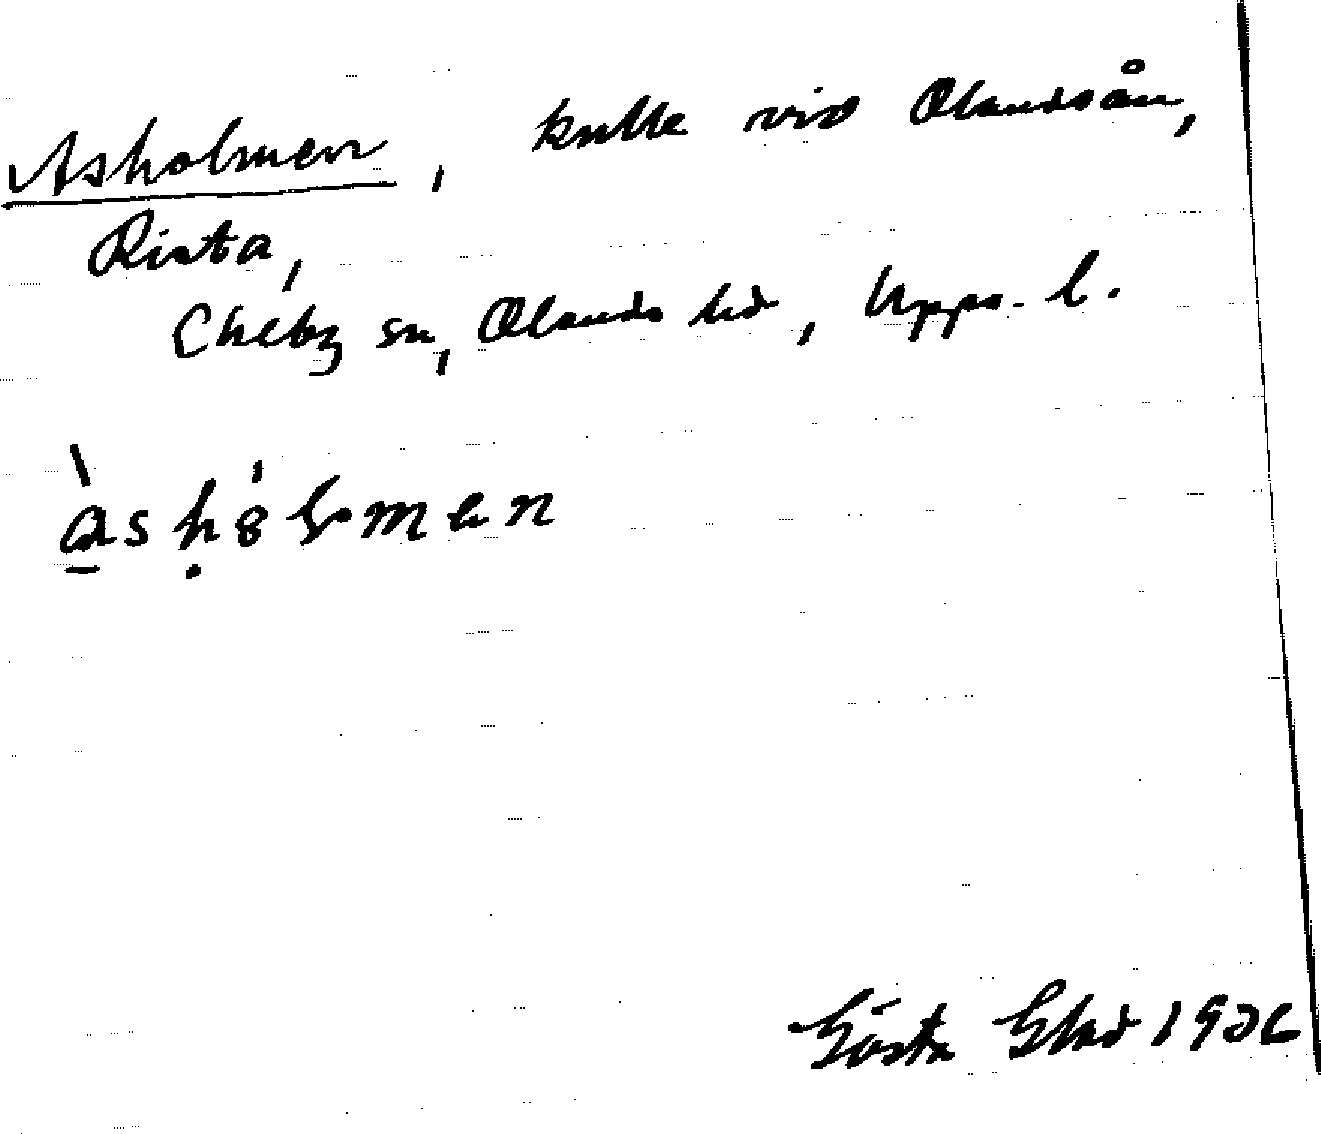 Asholmen, kulle vid Olandsån,
Rista,
Ekeby sn, Olands hd, Upps. l.
Gösta Blad 1936